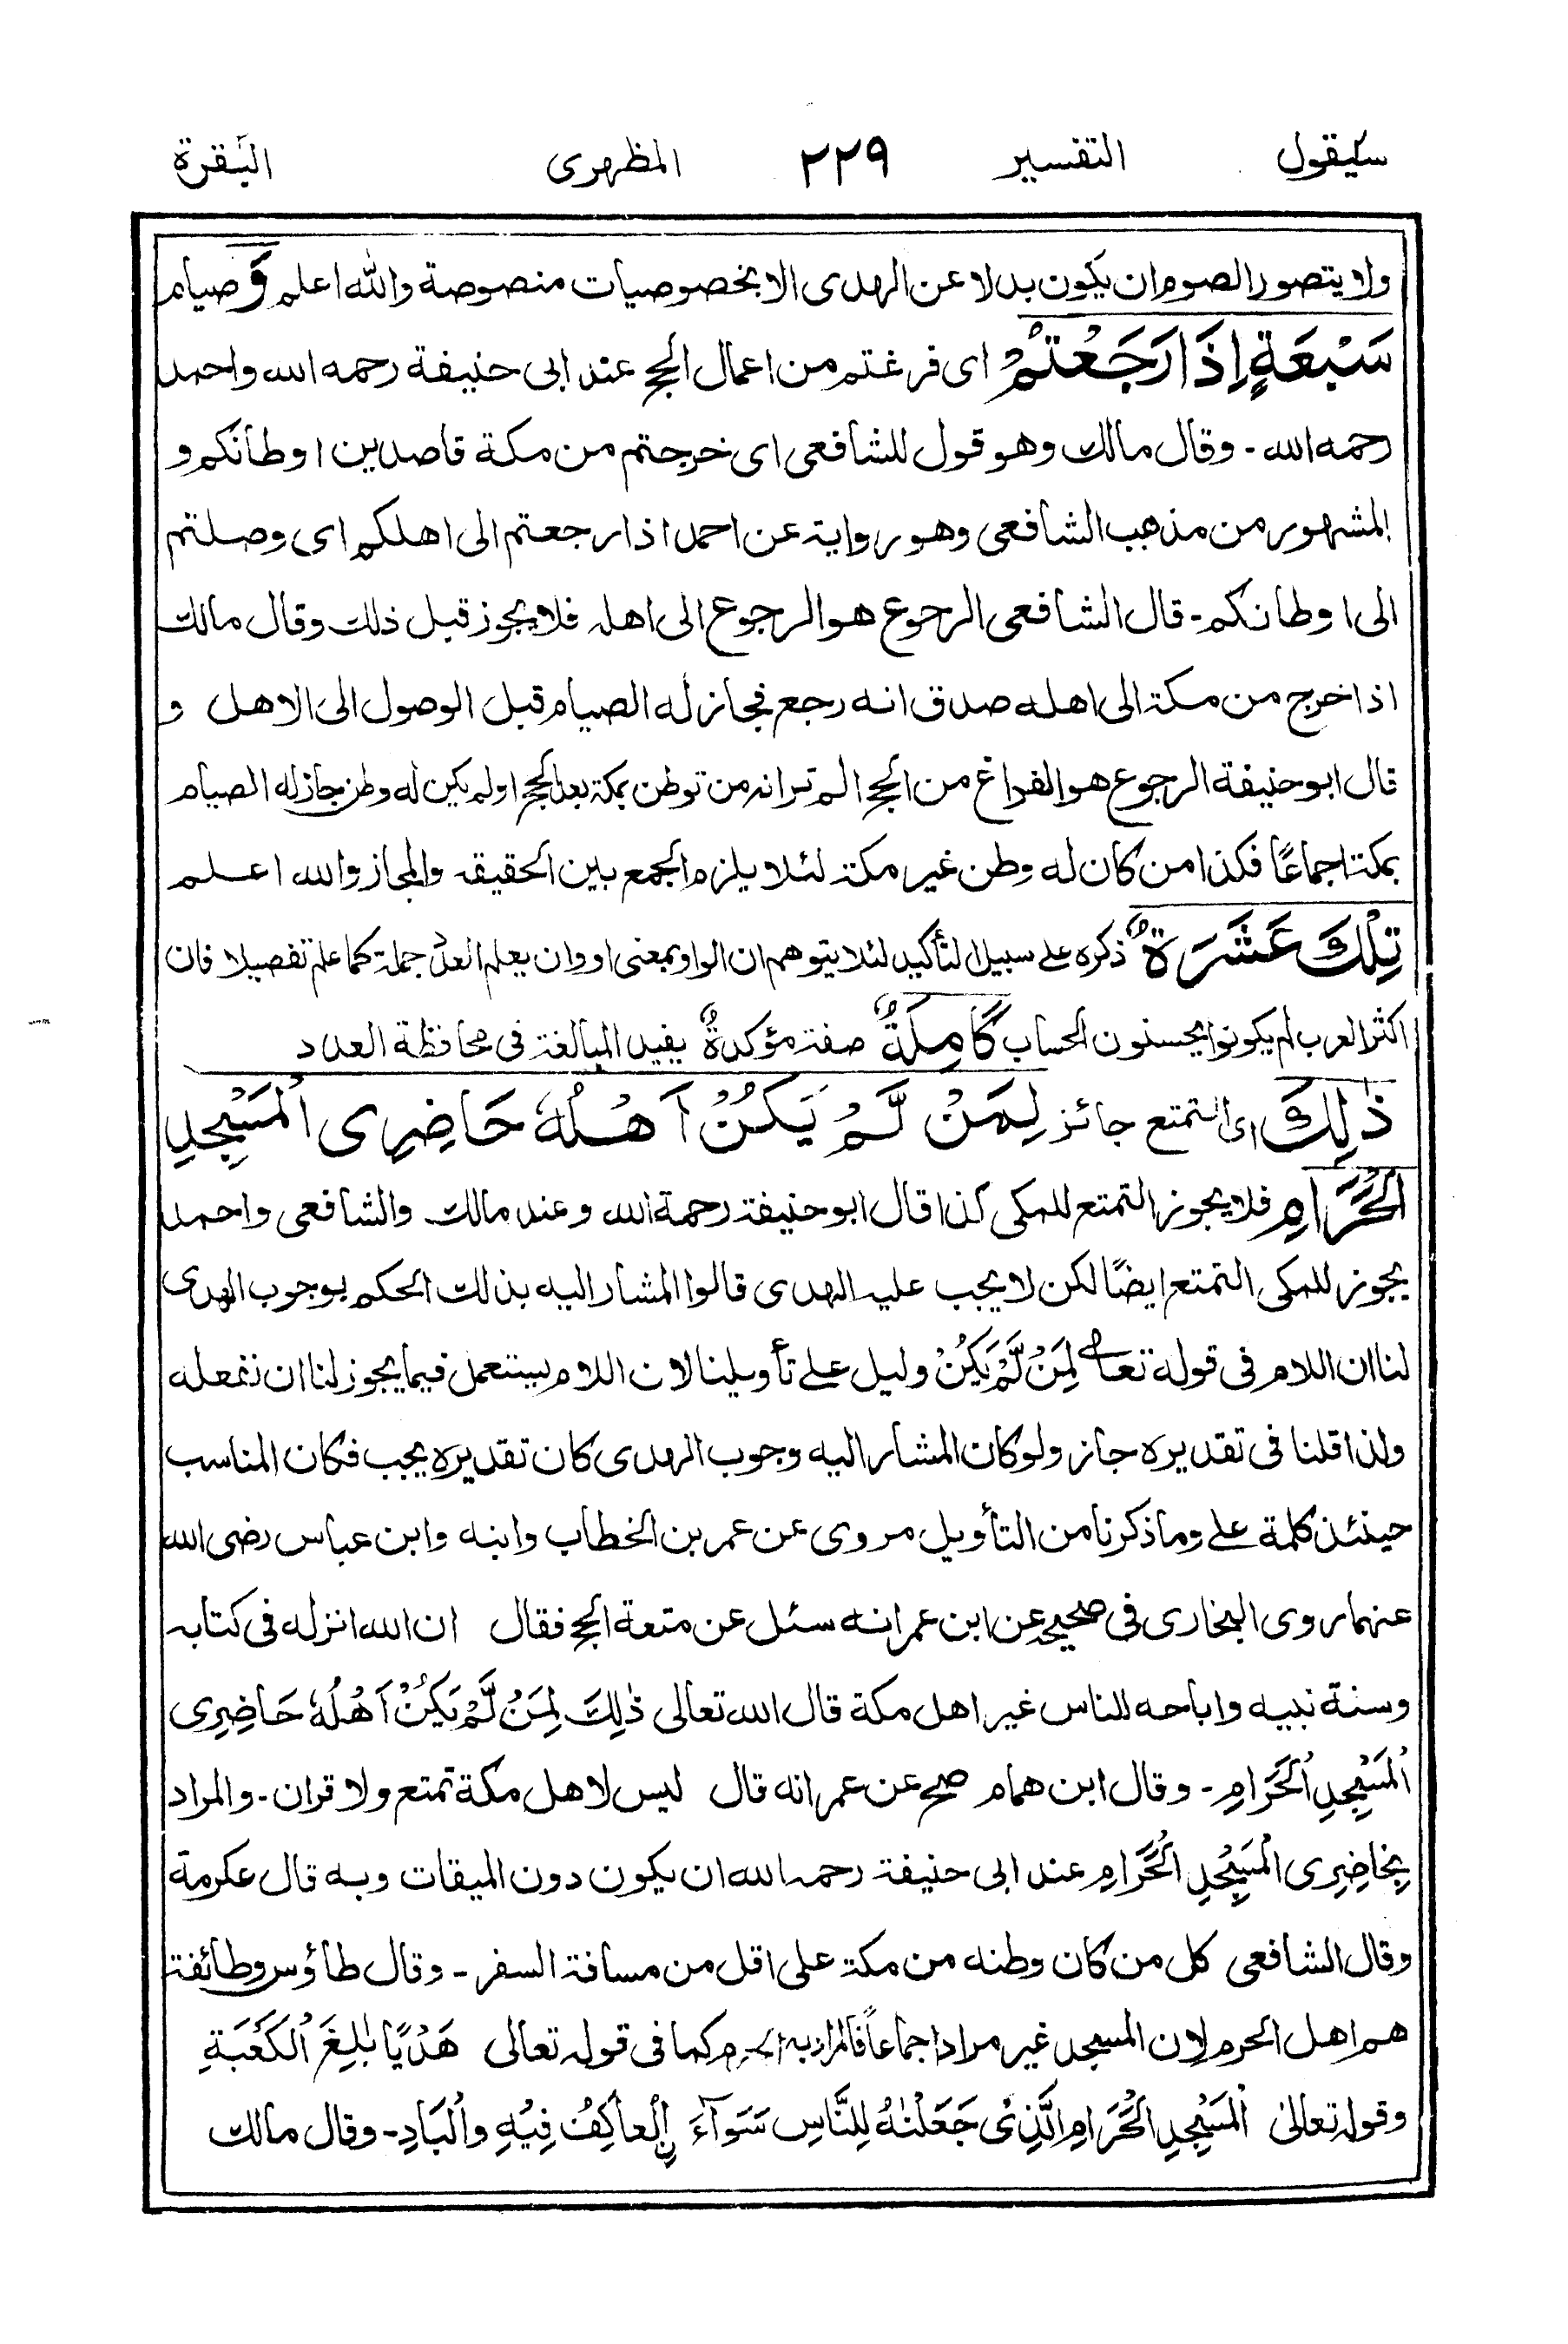 سيقول التفسير ٢٢٩ المظهرى البقرة
ولا يتصور الصوم ان يكون بدلا عن الهدى الا بخصوصيات منصوصة والله اعلم وَ صيام
سَبْعَةٍ اِذَا رَجَعْتُمْ اى فرغتم من اعمال الحج عند ابى حنيفة رحمه الله واحمد
رحمه الله - وقال مالك وهو قول للشافعى اى خرجتم من مكة قاصدين اوطانكم و
المشهور من مذهب الشافعى وهو رواية عن احمد اذا رجعتم الى اهلكم اى وصلتم
الى اوطانكم - قال الشافعى الرجوع هو الرجوع الى اهله فلا يجوز قبل ذلك وقال مالك
اذا خرج من مكة الى اهله صدق انه رجع فجاز له الصيام قبل الوصول الى الاهل و
قال ابو حنيفة الرجوع هو الفراغ من الحج الم تر انه من توطن بمكة بعد الحج او لم يكن له وطن جاز له الصيام
بمكة اجماعًا فكذا من كان له وطن غير مكة لئلا يلزم الجمع بين الحقيقة والمجاز والله اعلم
تِلْكَ عَشَرَةٌ ذكره على سبيل التأكيد لئلا يتوهم ان الواو بمعنى او وان يعلم العدد جملة كما علم تفصيلا فان
اكثر العرب لم يكونوا يحسنون الحساب كَامِلَةٌ صفة مؤكدةٌ يفيد المبالغة فى محافظة العدد
ذٰلِكَ اى التمتع جائز لِمَنْ لَّمْ يَكُنْ اَهْلُهٗ حَاضِرِى الْمَسْجِدِ
الْحَرَامِ فلا يجوز التمتع للمكى كذا قال ابو حنيفة رحمة الله وعند مالك والشافعى واحمد
يجوز للمكى التمتع ايضًا لكن لا يجب عليه الهدى قالوا المشار اليه بذلك الحكم بوجوب الهدى
لنا ان اللام فى قوله تعالى لِمَنْ لَّمْ يَكُنْ وليل على تأويلنا لان اللام يستعمل فيما يجوز لنا ان نفعله
ولذا قلنا فى تقديره جاز ولو كان المشار اليه وجوب الهدى كان تقديره يجب فكان المناسب
حينئذ كلمة على وما ذكرنا من التأويل مروى عن عمر بن الخطاب وابنه وابن عباس رضى الله
عنهما روى البخارى فى صحيحه عن ابن عمر انه سئل عن متعة الحج فقال ان الله انزله فى كتابه
وسنة نبيه واباحه للناس غير اهل مكة قال الله تعالى ذٰلِكَ لِمَنْ لَّمْ يَكُنْ اَهْلُهٗ حَاضِرِى
الْمَسْجِدِ الْحَرَامِ - وقال ابن همام صح عن عمر انه قال ليس لاهل مكة تمتع ولا قران - والمراد
بِحَاضِرِى الْمَسْجِدِ الْحَرَامِ عند ابى حنيفة رحمه الله ان يكون دون الميقات وبه قال عكرمة
وقال الشافعى كل من كان وطنه من مكة على اقل من مسافة السفر - وقال طاؤس وطائفة
هم اهل الحرم لان المسجد غير مراد اجماعاً فالمراد به الحرم كما فى قوله تعالى هَدْيًا بٰلِغَ الْكَعْبَةِ
وقوله تعالىٰ الْمَسْجِدِ الْحَرَامِ الَّذِىْ جَعَلْنٰهُ لِلنَّاسِ سَوَآءَ اِلْعاكِفُ فِيْهِ وَالْبَادِ - وقال مالك